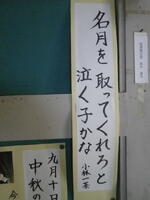 名月を
取ってくれろと
泣く子かな
小林一茶
九月十日
中秋の
今